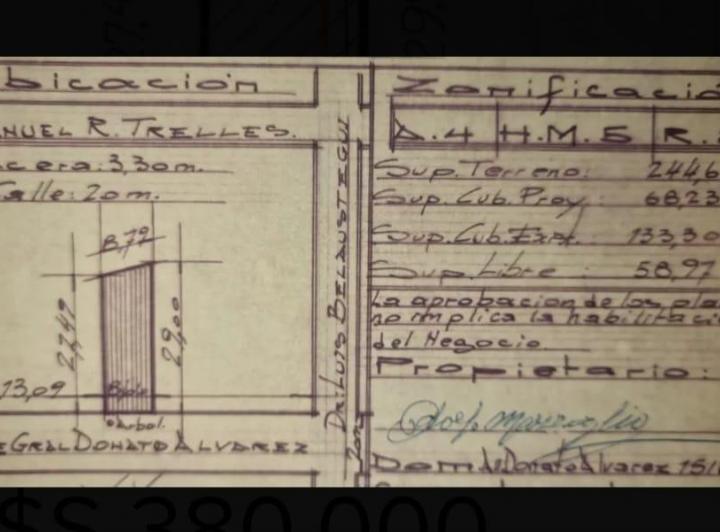 bicación
NUEL R. TRELLES.
cera: 3,30m.
Calle: 20m.
8,79
27,49
29,00
13,09
Arbol.
GRAL DONATO ALVAREZ
DR. LUIS BELAUSTEGUI
Zonificació
A.4 H.M.5 R.
Sup. Terreno: 244,6
Sup. Cub. Proy. 68,23
Sup. Cub. Exist. : 133,30
Sup. Libre : 58,97
La aprobacion de los pla
no implica la habilitaci
del Negocio
Propietario:
Dom. Donato Alvarez 151
$S 380.000